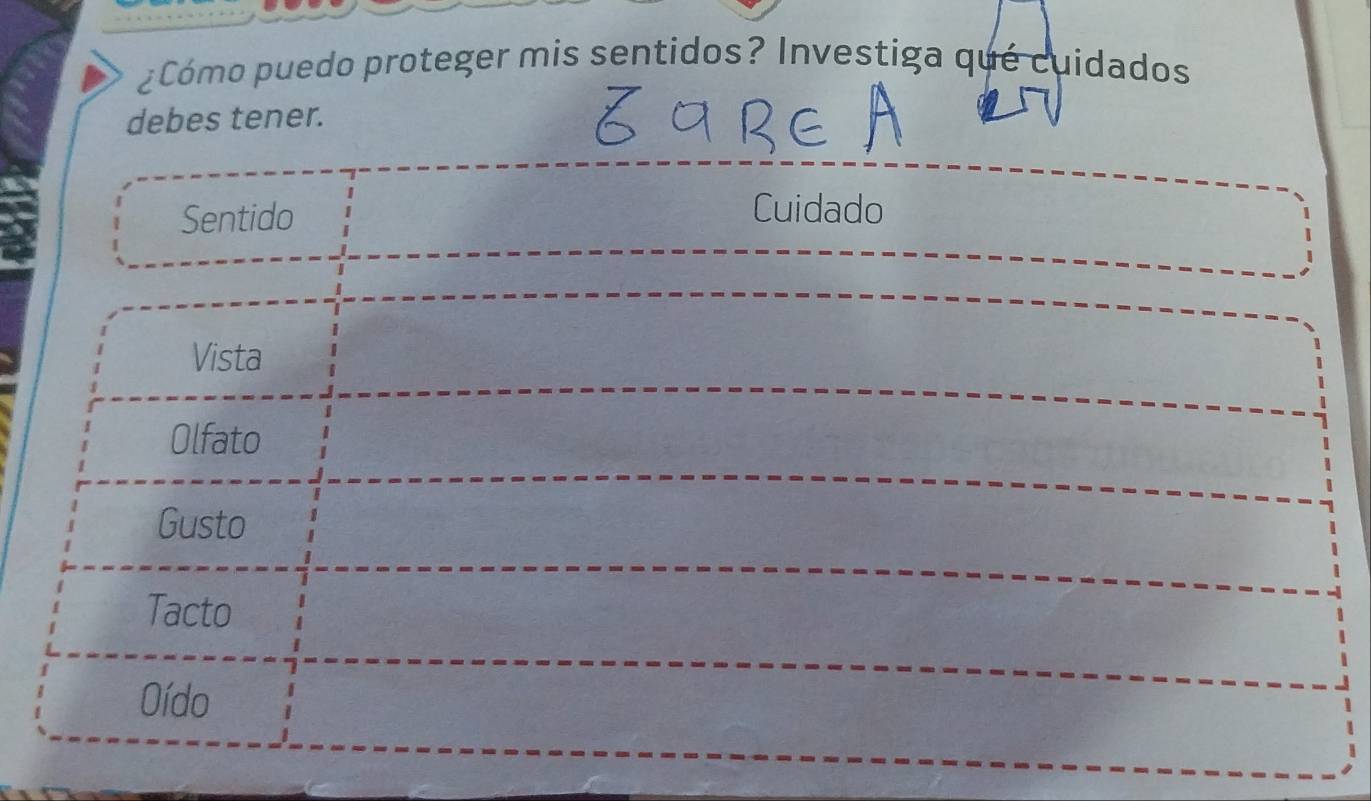 ¿Cómo puedo proteger mis sentidos? Investiga qué cuidados
debes tener.
Sentido
Cuidado
Vista
Olfato
Gusto
Tacto
Oído